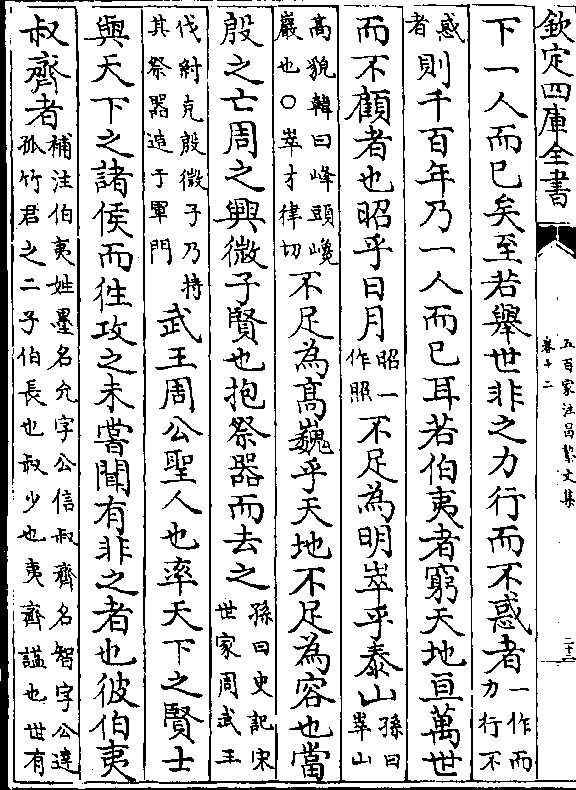 欽定四庫全書
五百家注昌黎文集
卷十二
二十二
下一人而已矣至若舉世非之力行而不惑者一作而力行不
惑者則千百年乃一人而已耳若伯夷者窮天地亘萬世
而不顧者也昭乎日月昭一作照不足為明崒乎泰山孫曰崒山
高貌韓曰峰頭巉巖也○崒才律切不足為高巍乎天地不足為容也當
殷之亡周之興微子賢也抱祭器而去之孫曰史記宋世家周武王
伐紂克殷微子乃持其祭器造于軍門武王周公聖人也率天下之賢士
與天下之諸侯而徃攻之未嘗聞有非之者也彼伯夷
叔齊者補注伯夷姓墨名允字公信叔齊名智字公達孤竹君之二子伯長也叔少也夷齊諡也世有